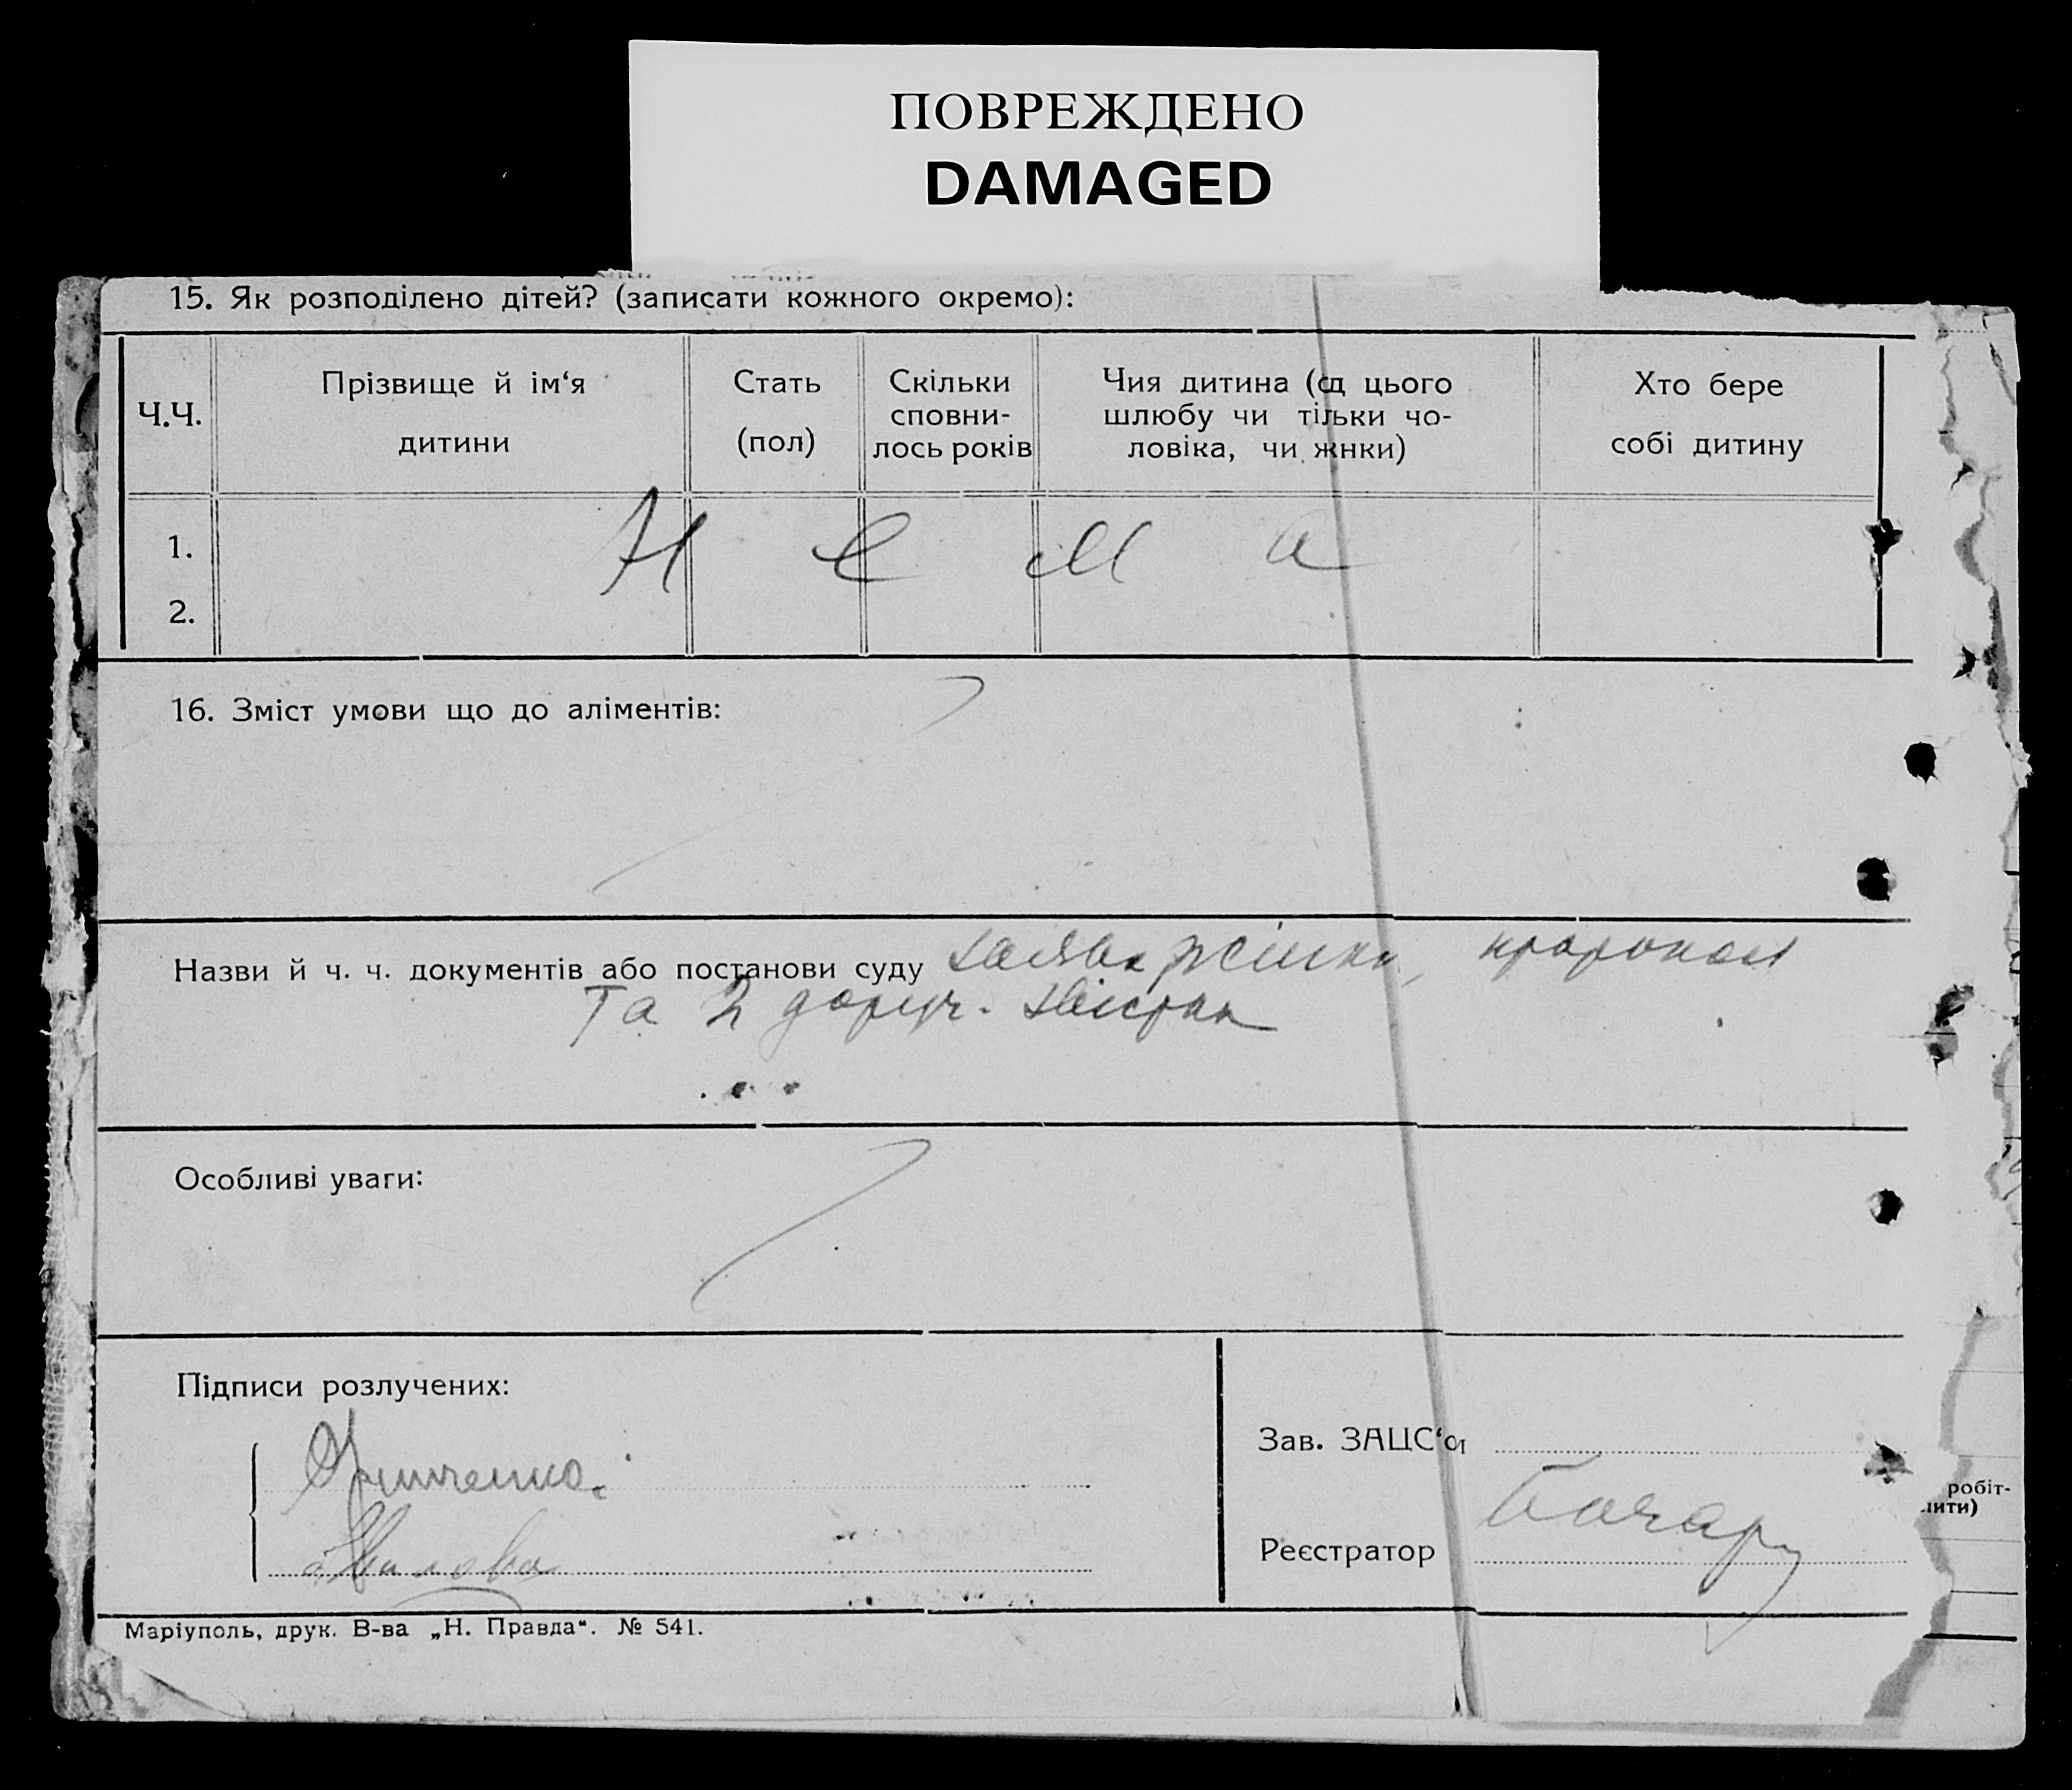 ПОВРЕЖДЕНО
DAMAGED
15. Як розподілено дітей? (записати кожного окремо):
Ч.Ч.
Прізвище й ім‘я
дитини
Стать
(пол)
Скільки
сповни-
лось років
Чия дитина (од цього
шлюбу чи тільки чо-
ловіка, чи жнки)
Хто бере
собі дитину
1.
2.
Нема
16. Зміст умови що до аліментів:
Назви й ч. ч. документів або постанови суду заява жінки,
та 2
Особливі уваги:
Підписи розлучених:
Зав. ЗАЦС‘ом
Реєстратор
робіт-
нити)
Маріуполь, друк. В-ва „Н. Правда“. № 541.